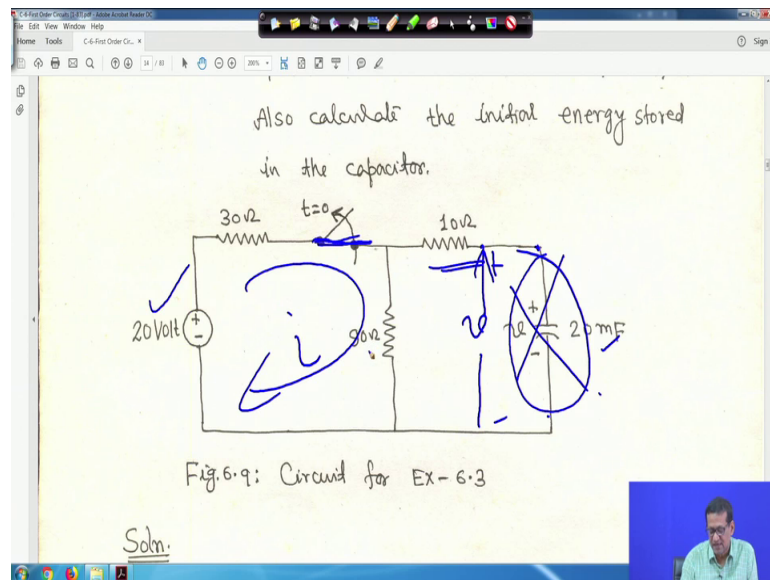 C-6-First Order Circuits [1-83].pdf - Adobe Acrobat Reader DC
File Edit View Window Help
Home Tools C-6-First Order Cir... × Sign
14 / 83 200%
Also calculate the initial energy stored
in the capacitor.
t=0
30Ω 10Ω
+
20 Volt + - i 90Ω v + - 20 mF
-
Fig. 6.9: Circuit for Ex-6.3
Soln.